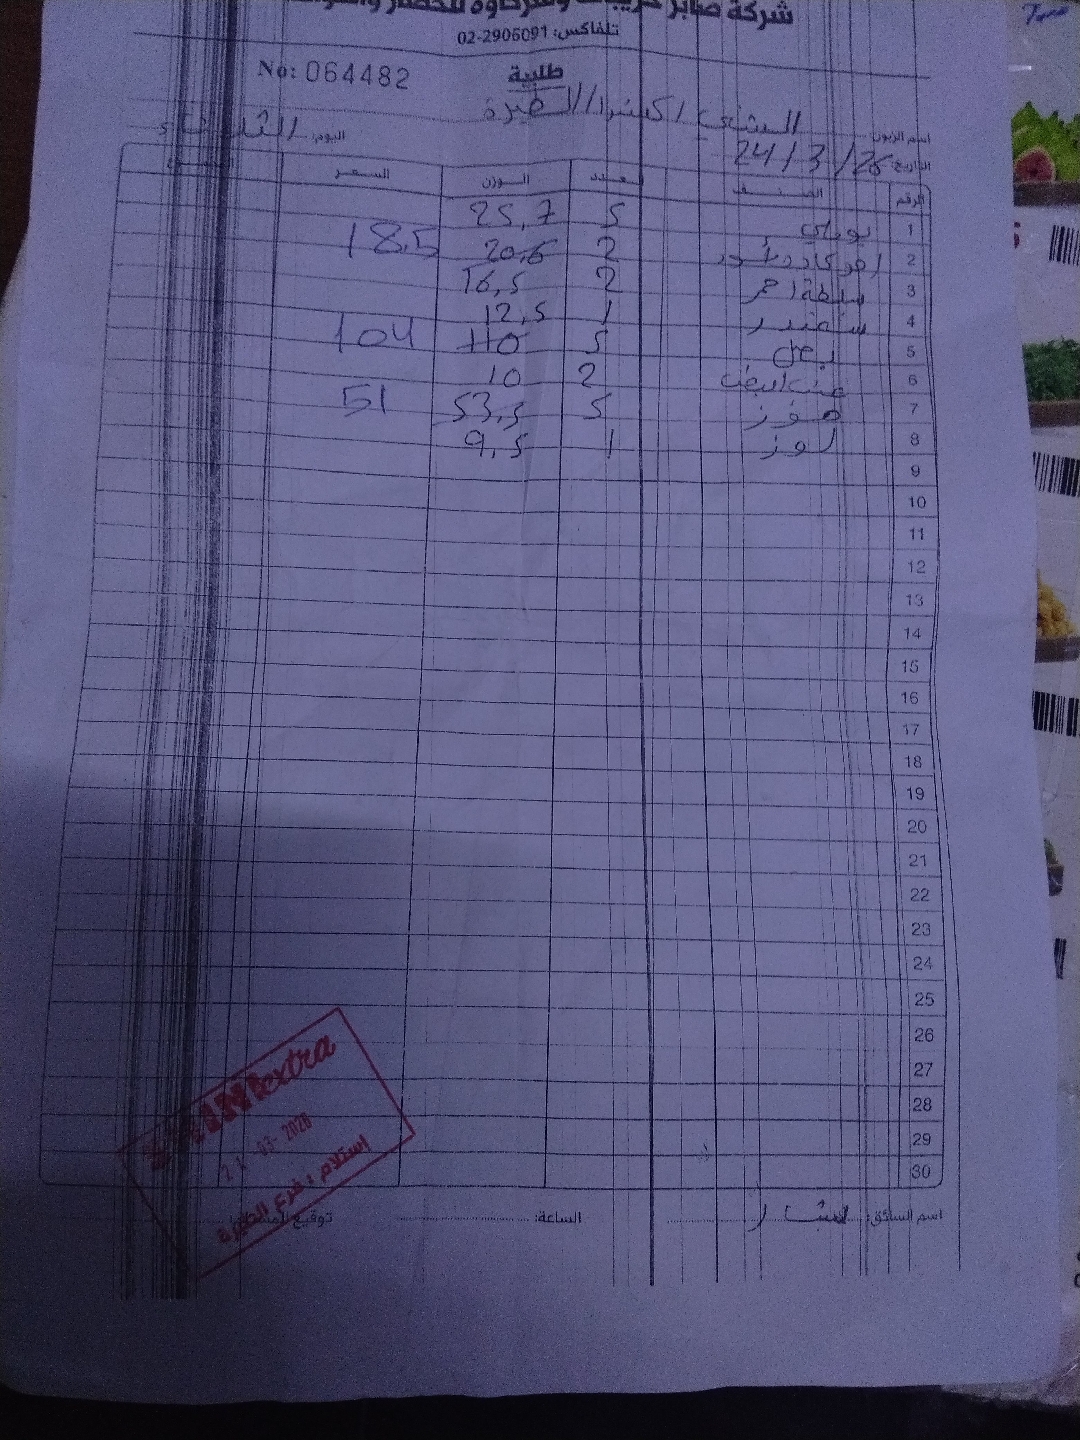 شركة صابر
تلفاكس: 02-2906091
طلبية
No: 064482
اسم الزبون: الشني اكسترا / الطيرة
التاريخ: 24 / 3 / 26
اليوم: الثلاثاء
الرقم الصنف العدد الوزن السعر
1 بوملي 5 25,7
2 افوكادو 2 20,6 18,5
3 2 16,5
4 1 12,5
5 بصل 5 110 104
6 عنب ابيض 2 10
7 موز 5 53,5 51
8 لوز 1 9,5
9
10
11
12
13
14
15
16
17
18
19
20
21
22
23
24
25
26
27
28
29
30
extra
03- 2026
استلام : فرع الطيرة
اسم السائق: بشار
الساعة:
توقيع